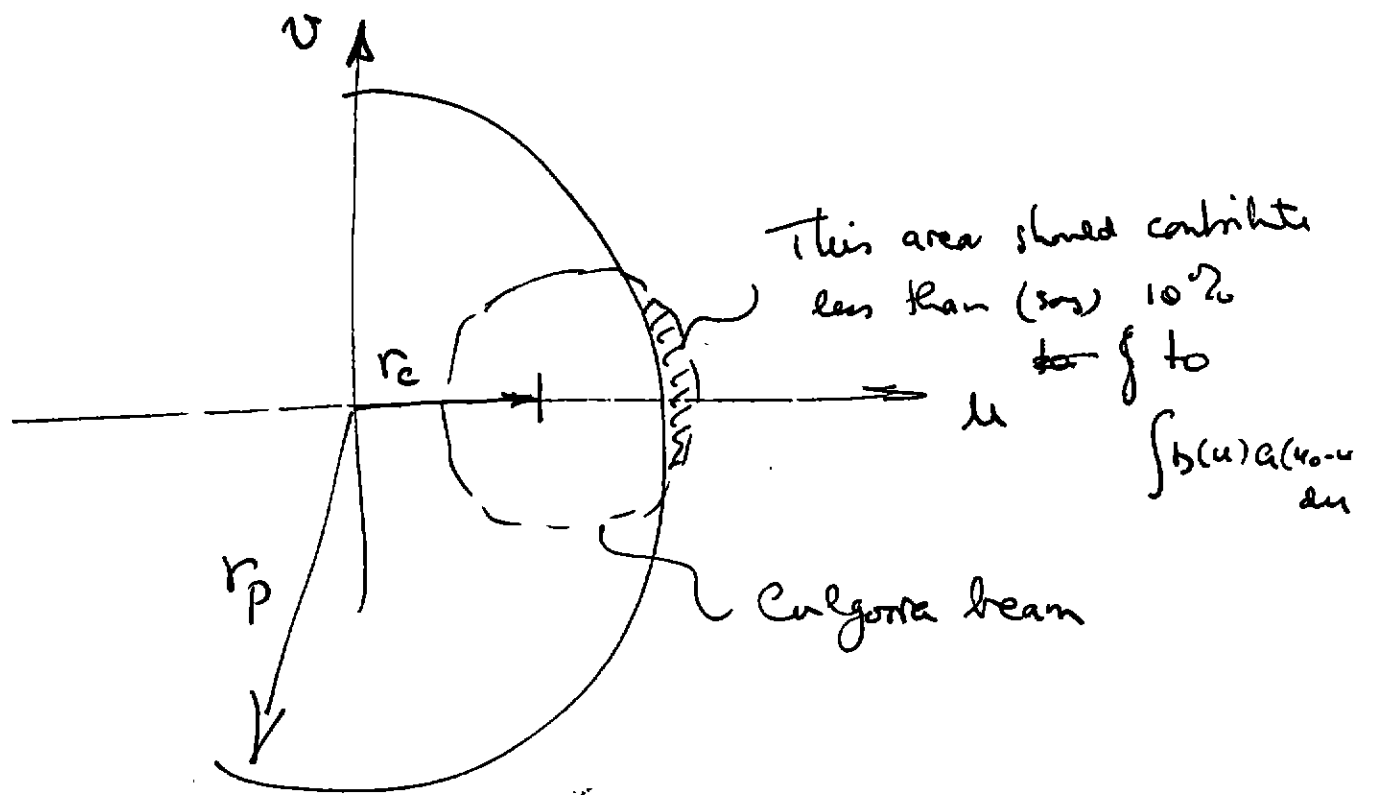 v
This area should contribute
less than (say) 10%
of to
r_c
u
∫b(u)a(u₀-u
du
r_p
Culgoora beam